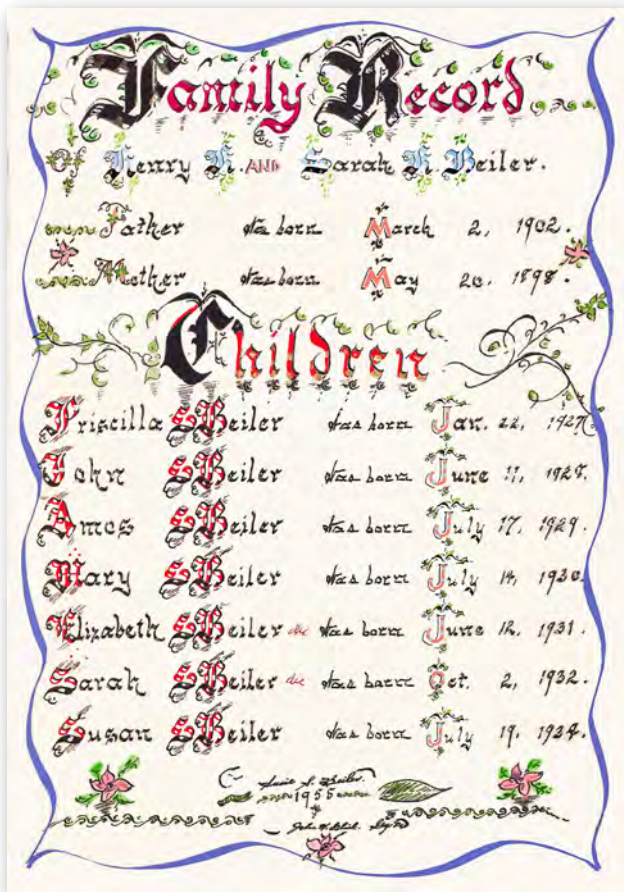 Family Record
Of Henry K. AND Sarah K. Beiler.
Father Was born March 2, 1902.
Mother Was born May 20. 1898.
Children
Priscilla S Beiler Was born Jan. 22, 1927.
John S Beiler Was born June 11, 1928.
Amos S Beiler Was born July 17, 1929.
Mary S Beiler Was born July 14, 1930.
Elizabeth S Beiler die Was born June 12, 1931.
Sarah S Beiler die Was born Oct. 2, 1932.
Susan S Beiler Was born July 19, 1934.
Beiler.
1955
John